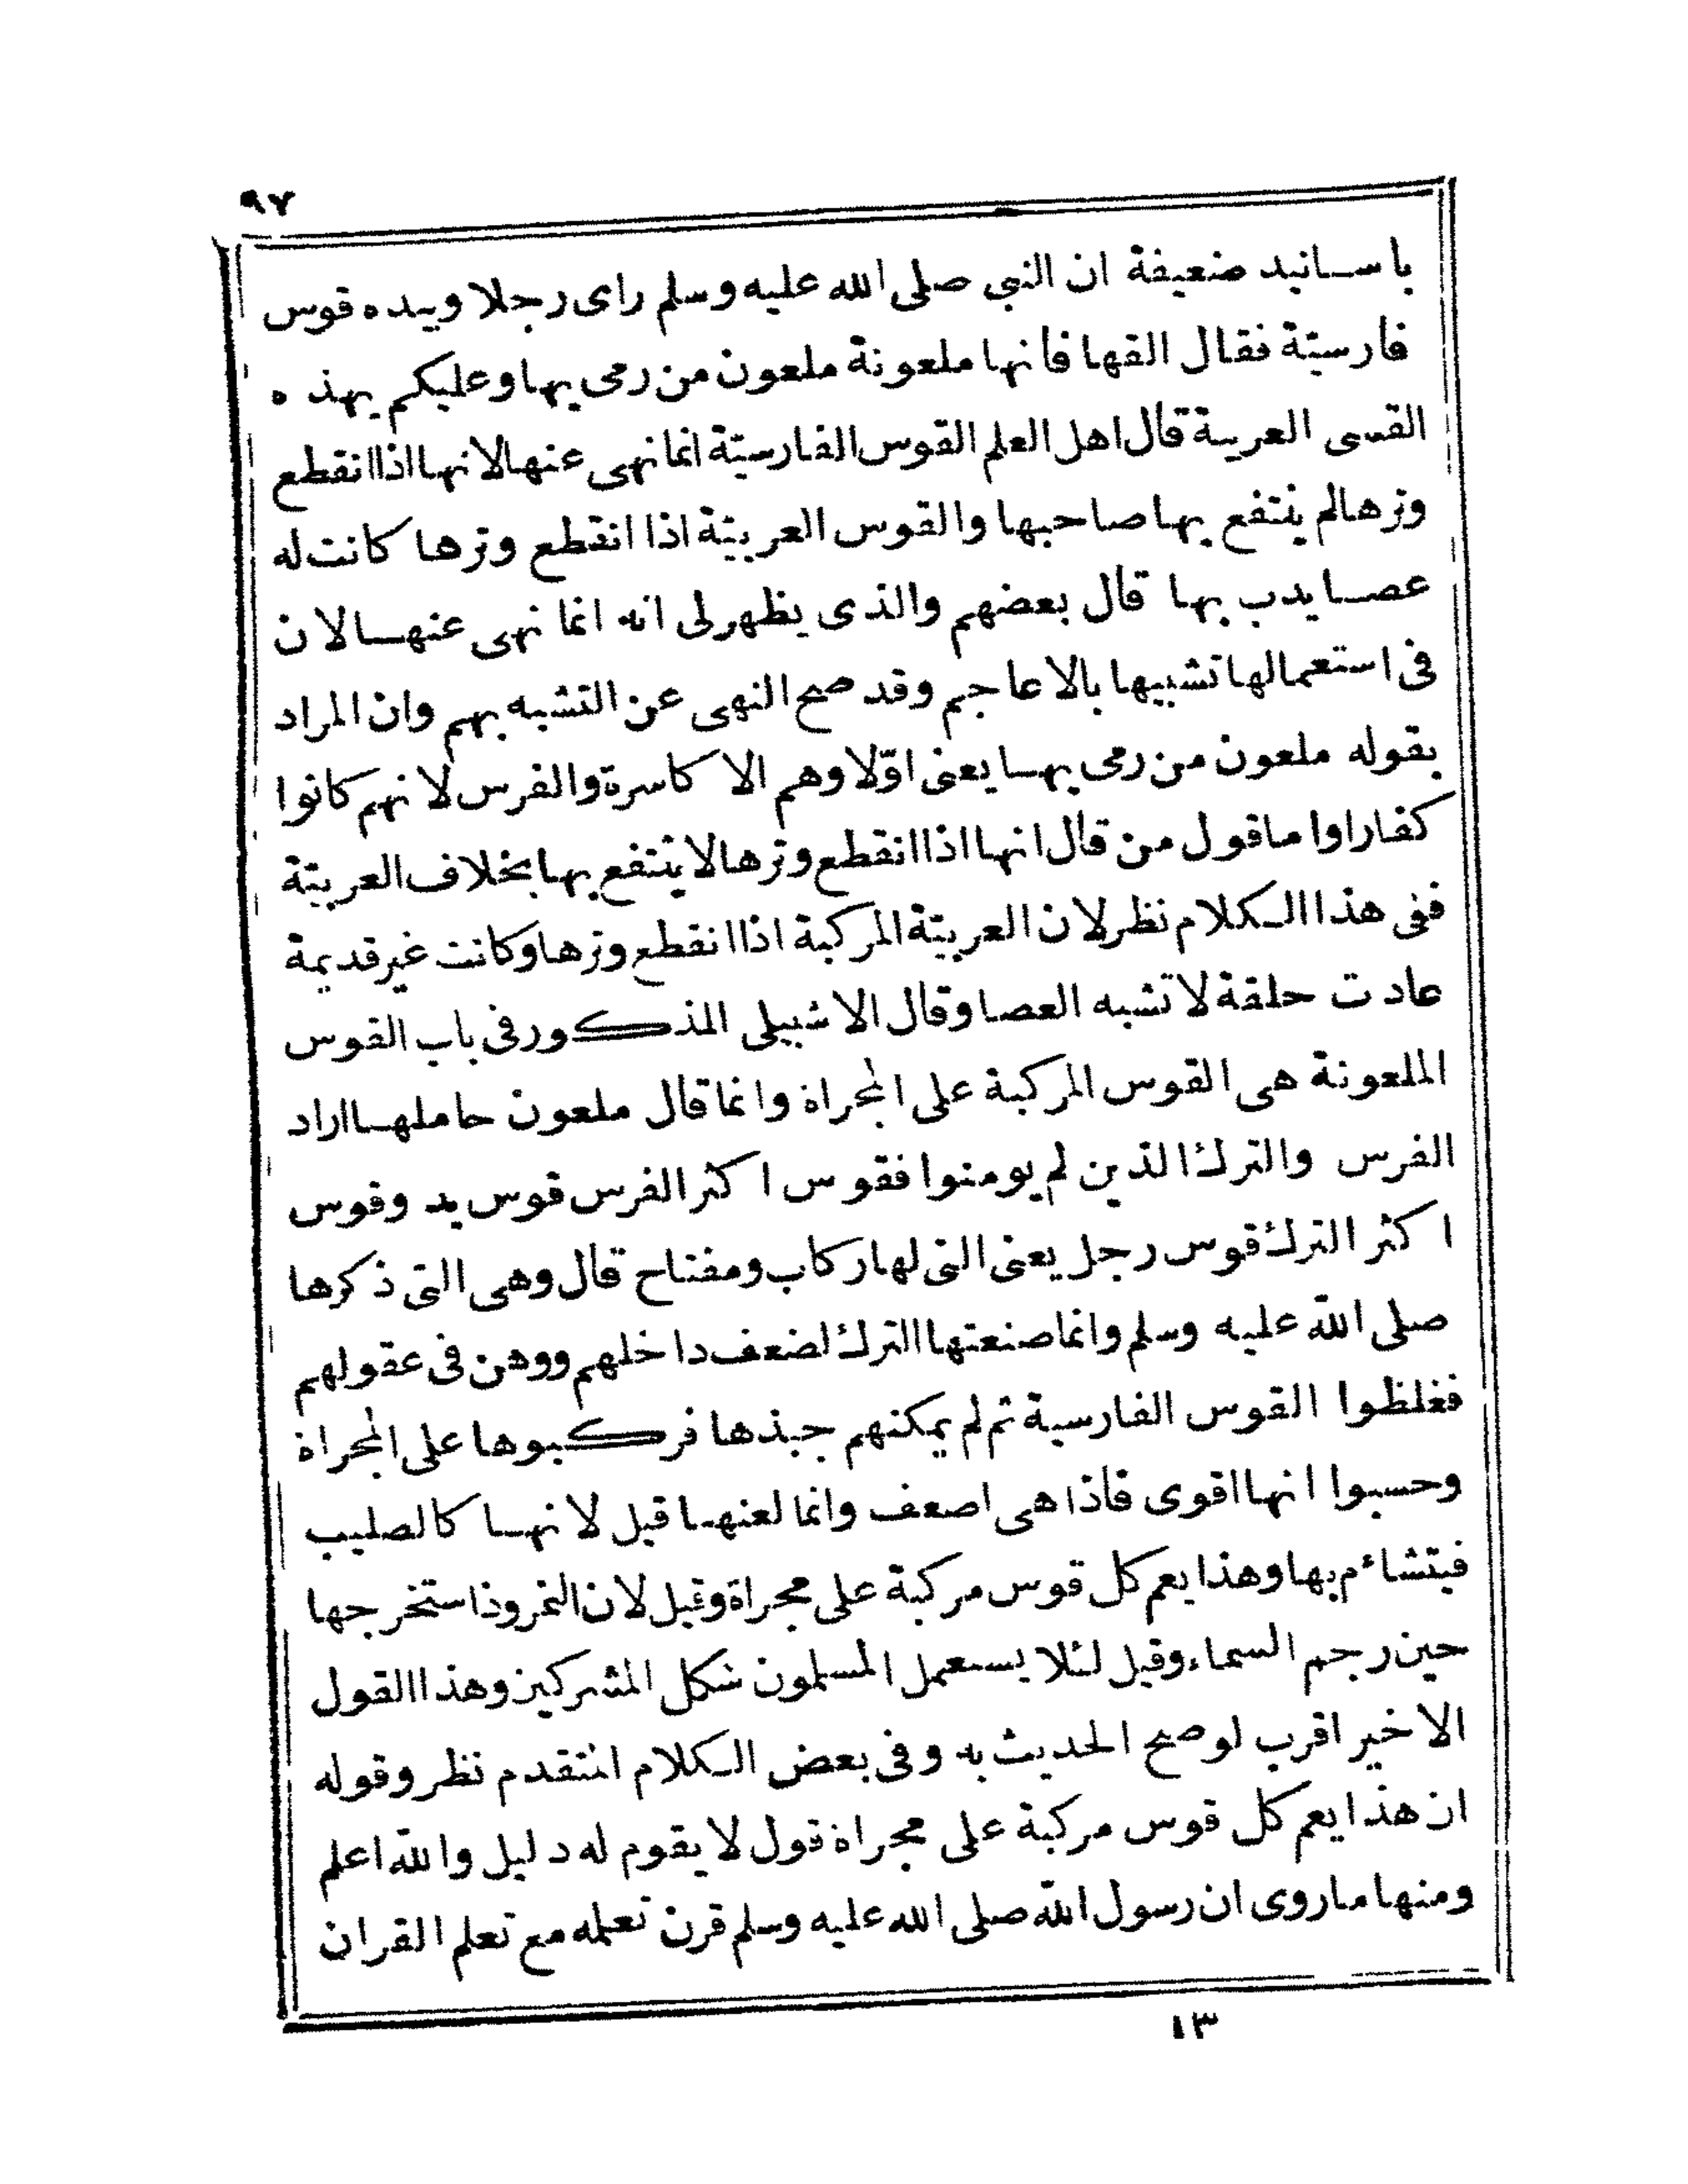 ٩٧
باسانيد ضعيفة ان النبى صلى الله عليه وسلم راى رجلا وبيده قوس
فارسيّة فقال القها فانها ملعونة ملعون من رمى بها وعليكم بهذه
القسى العربية قال اهل العلم القوس الفارسيّة انما نهى عنها لانها اذا انقطع
وترها لم ينتفع بها صاحبها والقوس العربيّة اذا انقطع وترها كانت له
عصا يدب بها قال بعضهم والذى يظهر لى انه انما نهى عنها لان
فى استعمالها تشبيها بالاعاجم وقد صح النهى عن التشبه بهم وان المراد
بقوله ملعون من رمى بها يعنى اوّلا وهم الاكاسرة والفرس لانهم كانوا
كفارا واما قول من قال انها اذا انقطع وترها لا ينتفع بها بخلاف العربيّة
ففى هذا الكلام نظر لان العربيّة المركبة اذا انقطع وترها وكانت غير قديمة
عادت حلقة لا تشبه العصا وقال الاشبيلى المذكور فى باب القوس
الملعونة هى القوس المركبة على المجراة وانما قال ملعون حاملها اراد
الفرس والترك الذين لم يومنوا فقوس اكثر الفرس قوس يد وقوس
اكثر الترك قوس رجل يعنى التى لها ركاب ومفتاح قال وهى التى ذكرها
صلى اللّه عليه وسلم وانما صنعتها الترك لضعف داخلهم ووهن فى عقولهم
فغلظوا القوس الفارسية ثم لم يمكنهم جبذها فركبوها على المجراة
وحسبوا انها اقوى فاذا هى اضعف وانما لعنها قيل لانها كالصليب
فيتشاءم بها وهذا يعم كل قوس مركبة على مجراة وقيل لان النمروذ استخرجها
حين رجم السماء وقيل لئلا يستعمل المسلمون شكل المشركين وهذا القول
الاخير اقرب لو صح الحديث به وفى بعض الكلام المتقدم نظر وقوله
ان هذا يعم كل قوس مركبة على مجراة قول لا يقوم له دليل واللّه اعلم
ومنها ما روى ان رسول اللّه صلى الله عليه وسلم قرن تعلمه مع تعلم القران
١٣